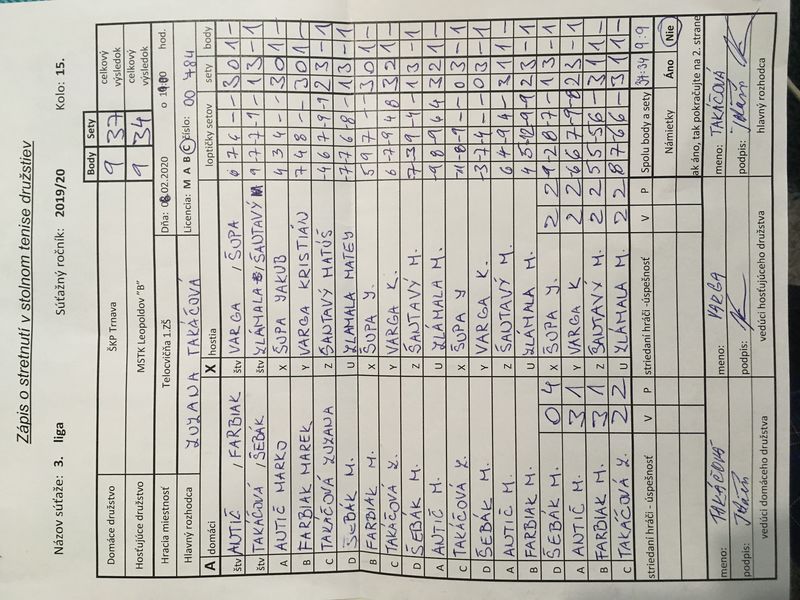 Zápis o stretnutí v stolnom tenise družstiev
Názov súťaže: 3. liga Súťažný ročník: 2019/20 Kolo: 15.
Body Sety celkový výsledok
Domáce družstvo ŠKP Trnava 9 37
Hosťujúce družstvo MSTK Leopoldov "B" 9 34 celkový výsledok
Hracia miestnosť Telocvičňa 1.ZŠ Dňa: 02.2020 o hod.
Hlavný rozhodca ZUZANA TAKÁČOVÁ Licencia: M A B C číslo: 00 784
A domáci X hostia loptičky setov sety body
štv ANTIČ / FARBIAK štv VARGA / ŠUPA 6 7 4 - - 3 0 1 -
štv TAKÁČOVÁ / ŠEBÁK štv ZLÁMALA / ŠANTAVÝ M 9 -7 -7 -9 - 1 3 - 1
A ANTIČ MARKO X ŠUPA JAKUB 4 3 4 - - 3 0 1 -
B FARBIAK MAREK Y VARGA KRISTIÁN 7 4 8 - - 3 0 1 -
C TAKÁČOVÁ ZUZANA Z ŠANTAVÝ MATÚŠ -4 6 7 -9 -9 2 3 - 1
D ŠEBÁK M. U ZLÁMALA MATEJ -7 -7 6 -8 - 1 3 - 1
B FARBIAK M. X ŠUPA J. 5 9 7 - - 3 0 1 -
C TAKÁČOVÁ Z. Y VARGA K. 6 -7 -9 4 8 3 2 1 -
D ŠEBÁK M. Z ŠANTAVÝ M. 1 3 - 1
A ANTIČ M. U ZLÁMALA M. -9 8 -9 6 4 3 2 1 -
C TAKÁČOVÁ Z. X ŠUPA J 0 3 - 1
D ŠEBÁK M. Y VARGA K. -3 -7 -4 - - 0 3 - 1
A ANTIČ M. Z ŠANTAVÝ M. 6 4 -9 4 - 3 1 1 -
B FARBIAK M. U ZLÁMALA M. 4 5 -12 -9 -9 2 3 - 1
D ŠEBÁK M. 0 4 X ŠUPA J. 2 2 -9 -2 8 -7 - 1 3 - 1
A ANTIČ M. 3 1 Y VARGA K 2 2 -6 6 7 -9 -8 2 3 - 1
B FARBIAK M. 3 1 Z ŠANTAVÝ M. 2 2 5 5 -5 6 - 3 1 1 -
C TAKÁČOVÁ Z. 2 2 U ZLÁMALA M. 2 2 8 7 -6 6 - 3 1 1 -
striedaní hráči - úspešnosť V P striedaní hráči -úspešnosť V P Spolu body a sety 37:34 9:9
Námietky Áno Nie
ak áno, tak pokračujte na 2. strane
meno: TAKÁČOVÁ meno: VARGA meno: TAKÁČOVÁ
podpis: podpis: podpis:
vedúci domáceho družstva vedúci hosťujúceho družstva hlavný rozhodca